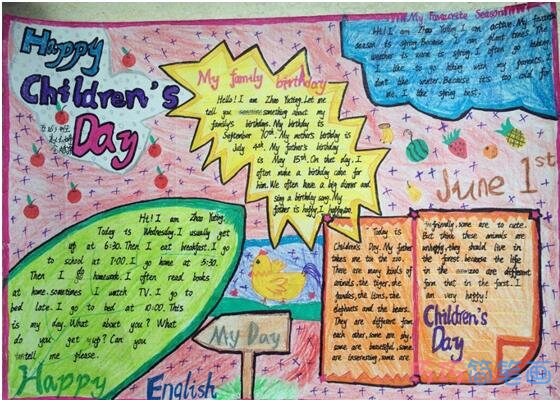 Happy
Children's
Day
My family birthday
Hello! I am Zhao Yuting. Let me
tell you something about my
family's birthdays. My birthday is
September 10th. My mother's birthday is
July 4th. My father's birthday
is May 15th. On that day, I
often make a birthday cake for
him. We often have a big dinner and
sing a birthday song. My
father is happy. I happy too.
My Favourite Season
Hi! I am Zhao Yuting. I am active. My favourite
season is spring. Because I plant trees. The
weather is warm and. I often go
like to go hiking with my parents. I
don't like winter. Because it's too cold for
me. I like spring best.
June 1st
Hi! I am Zhao Yuting.
Today is Wednesday. I usually get
up at 6:30. Then I eat breakfast. I go
to school at 7:00. I go home at 3:30.
Then I do homework. I often read books
at home. sometimes I watch TV. I go to
bed late. I go to bed at 10:00. This
is my day. What about you? What
do you get up? Can you
tell me please.
Happy
English
My Day
Today is
Children's Day. My father
takes me too the zoo.
There are many kinds of
animals, the tiger, the
pandas, the lions, the
elephants and the bears.
They are different from
each other, some are shy,
some are beautiful, some
are interesting, some are
friendly, some are cute.
But think these animals are
unhappy, they should live in
the forest because the life
in the zoo are different
form that in the forst. I
am very happy!
Children's
Day